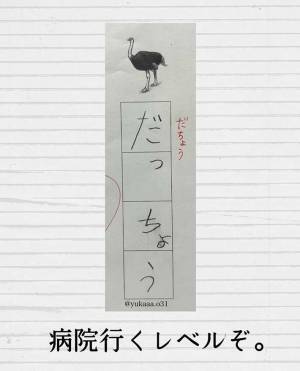 だっちょう
だちょう
@yukaaa.o31
病院行くレベルぞ。